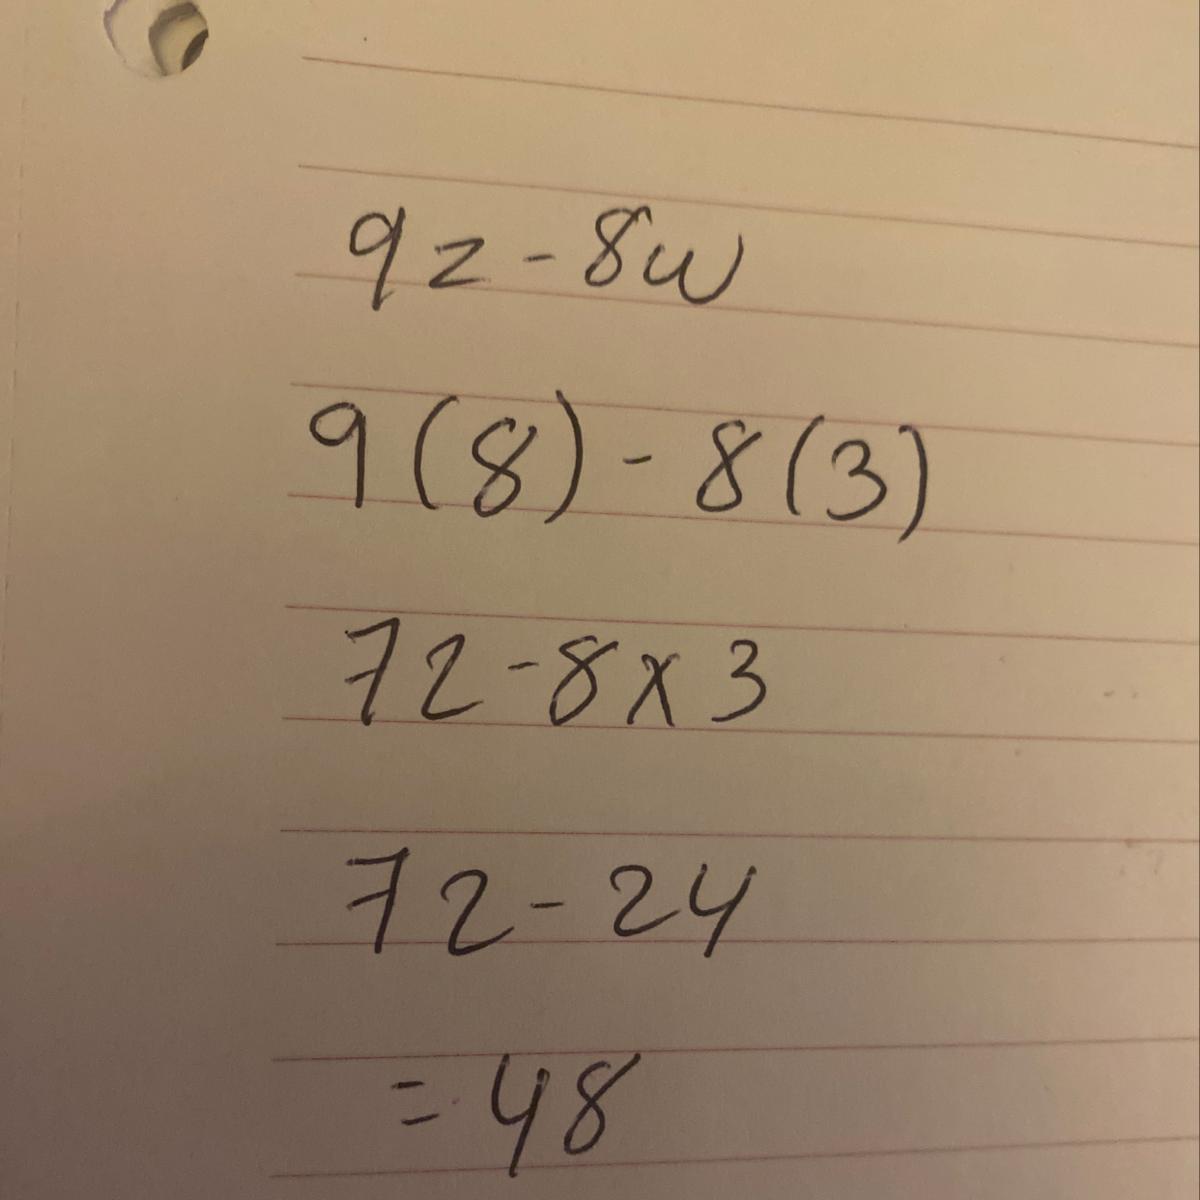 9z-8w
9(8)-8(3)
72-8x3
72-24
=48